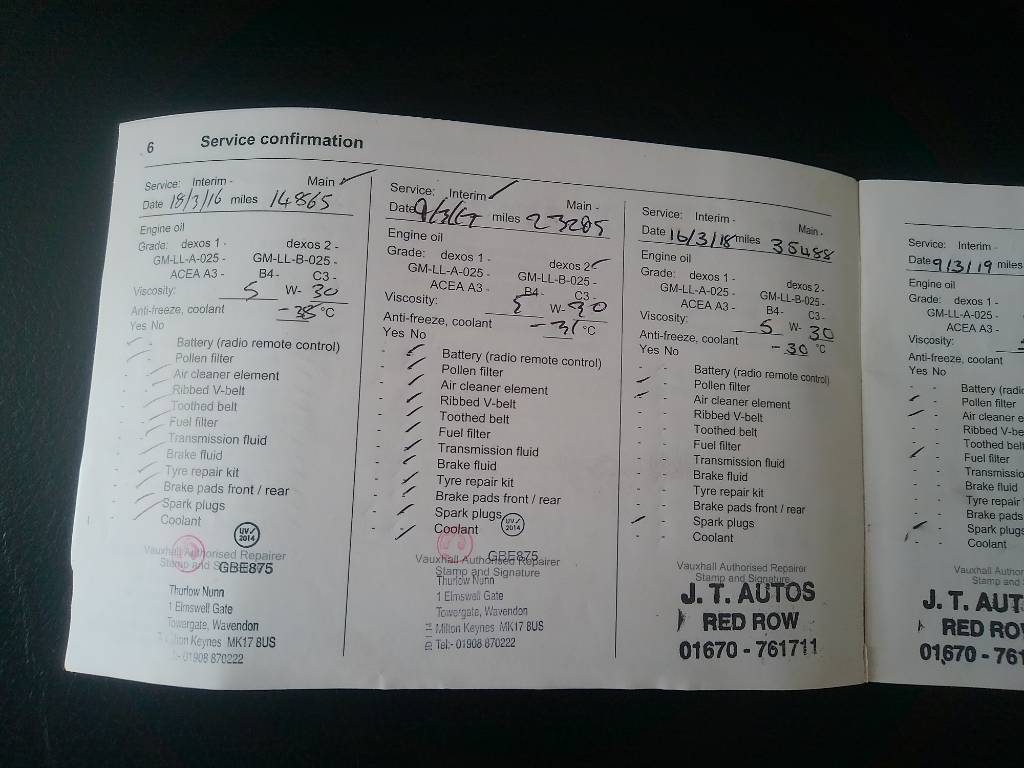 6 Service confirmation
Service: Interim - Main ✓
Date 18/3/16 miles 14865
Engine oil
Grade: dexos 1 - dexos 2 -
GM-LL-A-025 - GM-LL-B-025 -
ACEA A3 - B4 - C3 -
Viscosity: 5 W- 30
Anti-freeze, coolant -38 °C
Yes No
Battery (radio remote control)
Pollen filter
Air cleaner element
Ribbed V-belt
Toothed belt
Fuel filter
Transmission fluid
Brake fluid
Tyre repair kit
Brake pads front / rear
Spark plugs
Coolant
UV✓
2014
Vauxhall Authorised Repairer
Stamp and GBE875
Thurlow Nunn
1 Elmswell Gate
Towergate, Wavendon
Milton Keynes MK17 8US
:- 01908 870222
Service: Interim ✓ Main -
Date miles 23205
Engine oil
Grade: dexos 1 - dexos 2 ✓
GM-LL-A-025 - GM-LL-B-025 -
ACEA A3 - B4 - C3 -
Viscosity: 5 W- 30
Anti-freeze, coolant -31 °C
Yes No
Battery (radio remote control)
Pollen filter
Air cleaner element
Ribbed V-belt
Toothed belt
Fuel filter
Transmission fluid
Brake fluid
Tyre repair kit
Brake pads front / rear
Spark plugs
Coolant
UV✓
2014
GBE875
Vauxhall Authorised Repairer
Stamp and Signature
Thurlow Nunn
1 Elmswell Gate
Towergate, Wavendon
Milton Keynes MK17 8US
Tel:- 01908 870222
Service: Interim - Main -
Date 16/3/18 miles 35488
Engine oil
Grade: dexos 1 - dexos 2 -
GM-LL-A-025 - GM-LL-B-025 -
ACEA A3 - B4 - C3 -
Viscosity: 5 W- 30
Anti-freeze, coolant -30 °C
Yes No
Battery (radio remote control)
Pollen filter
Air cleaner element
Ribbed V-belt
Toothed belt
Fuel filter
Transmission fluid
Brake fluid
Tyre repair kit
Brake pads front / rear
Spark plugs
Coolant
Vauxhall Authorised Repairer
Stamp and Signature
J. T. AUTOS
RED ROW
01670 - 761711
Service: Interim -
Date 9/3/19 miles
Engine oil
Grade: dexos 1 -
GM-LL-A-025 -
ACEA A3 -
Viscosity:
Anti-freeze, coolant
Yes No
Battery (radio
Pollen filter
Air cleaner e
Ribbed V-be
Toothed belt
Fuel filter
Transmissio
Brake fluid
Tyre repair
Brake pads
Spark plugs
Coolant
Vauxhall Author
Stamp and
J. T. AUT
RED RO
01670 - 761